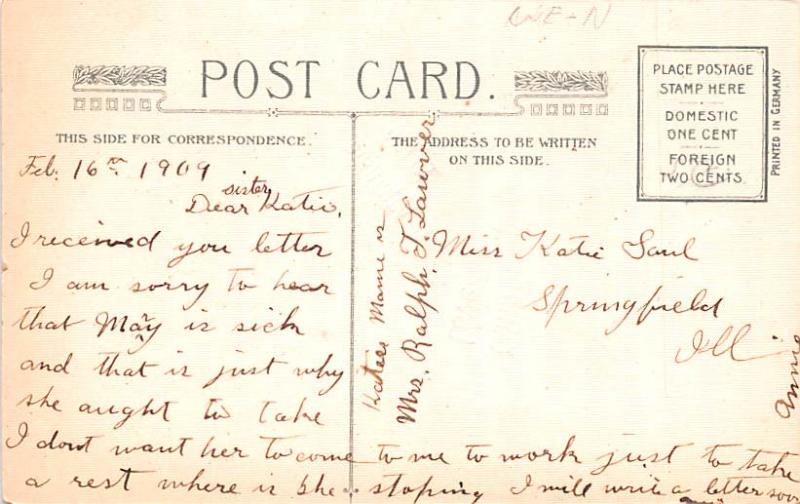 POST CARD.
THIS SIDE FOR CORRESPONDENCE.
THE ADDRESS TO BE WRITTEN
ON THIS SIDE.
PLACE POSTAGE
STAMP HERE
DOMESTIC
ONE CENT
FOREIGN
TWO CENTS
PRINTED IN GERMANY
Feb. 16th 1909
sister
Dear Katie,
I received you letter
I am sorry to hear
that May is sick
and that is just why
she aught to take
I dont want her to come to me to work just to take
a rest where is she stoping I will write a letter soo
Annie
Katies Mame is
Mrs. Ralph. T. Lawver
Miss Katie Saul
Springfield
Ill